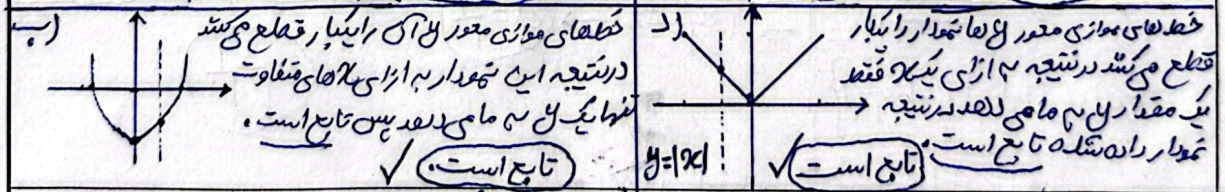 د)
خط های موازی محور yها نمودار را یکبار
قطع می‌کنند در نتیجه به ازای یک x فقط
یک مقدار y به ما می دهد در نتیجه
نمودار داده شده تابع است.
تابع است ✓
y=|x|
ب)
خط های موازی محور y آن را یکبار قطع می‌کنند
در نتیجه این نمودار به ازای x های متفاوت
تنها یک y به ما می دهد پس تابع است.
تابع است. ✓